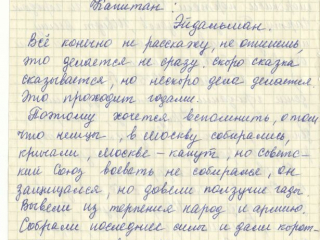 Капитан:
Эйдельман.
Всё конечно не расскажу, не опишешь,
это делается не сразу. Скоро сказка
сказывается, но нескоро дела делаются.
Это проходит годами.
Поэтому хочется вспомнить, о том
что немцы, в Москву собирались,
кричали, Москве – капут, но Советс-
кий Союз воевать не собирался, он
защищался, но довели ползучие гады
Вывели из терпения народ и армию.
Собрали последние силы и дали корот-